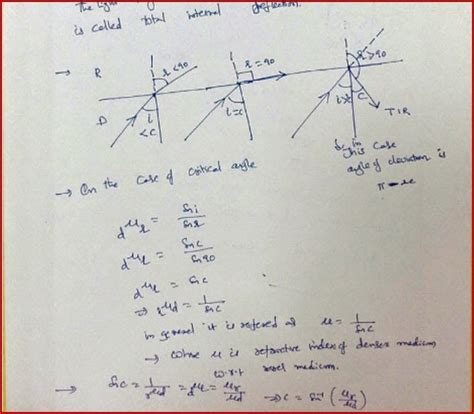 The light
is called total internal reflection.
→ R r<90 r=90 r>90
D i <C i=C i> C TIR
So, in this case
angle of deviation is
π-2c
→ On the case of critical angle
dμr = Sin i / Sin r
dμr = Sin C / Sin 90
dμr = Sin C
⇒ rμd = 1 / Sin C
in general it is refered as μ = 1 / Sin C
→ where μ is refractive index of denser medium
w.r.t rarer medium.
→ Sin C = 1 / rμd = dμr = μr / μd ⇒ C = Sin⁻¹ (μr / μd)